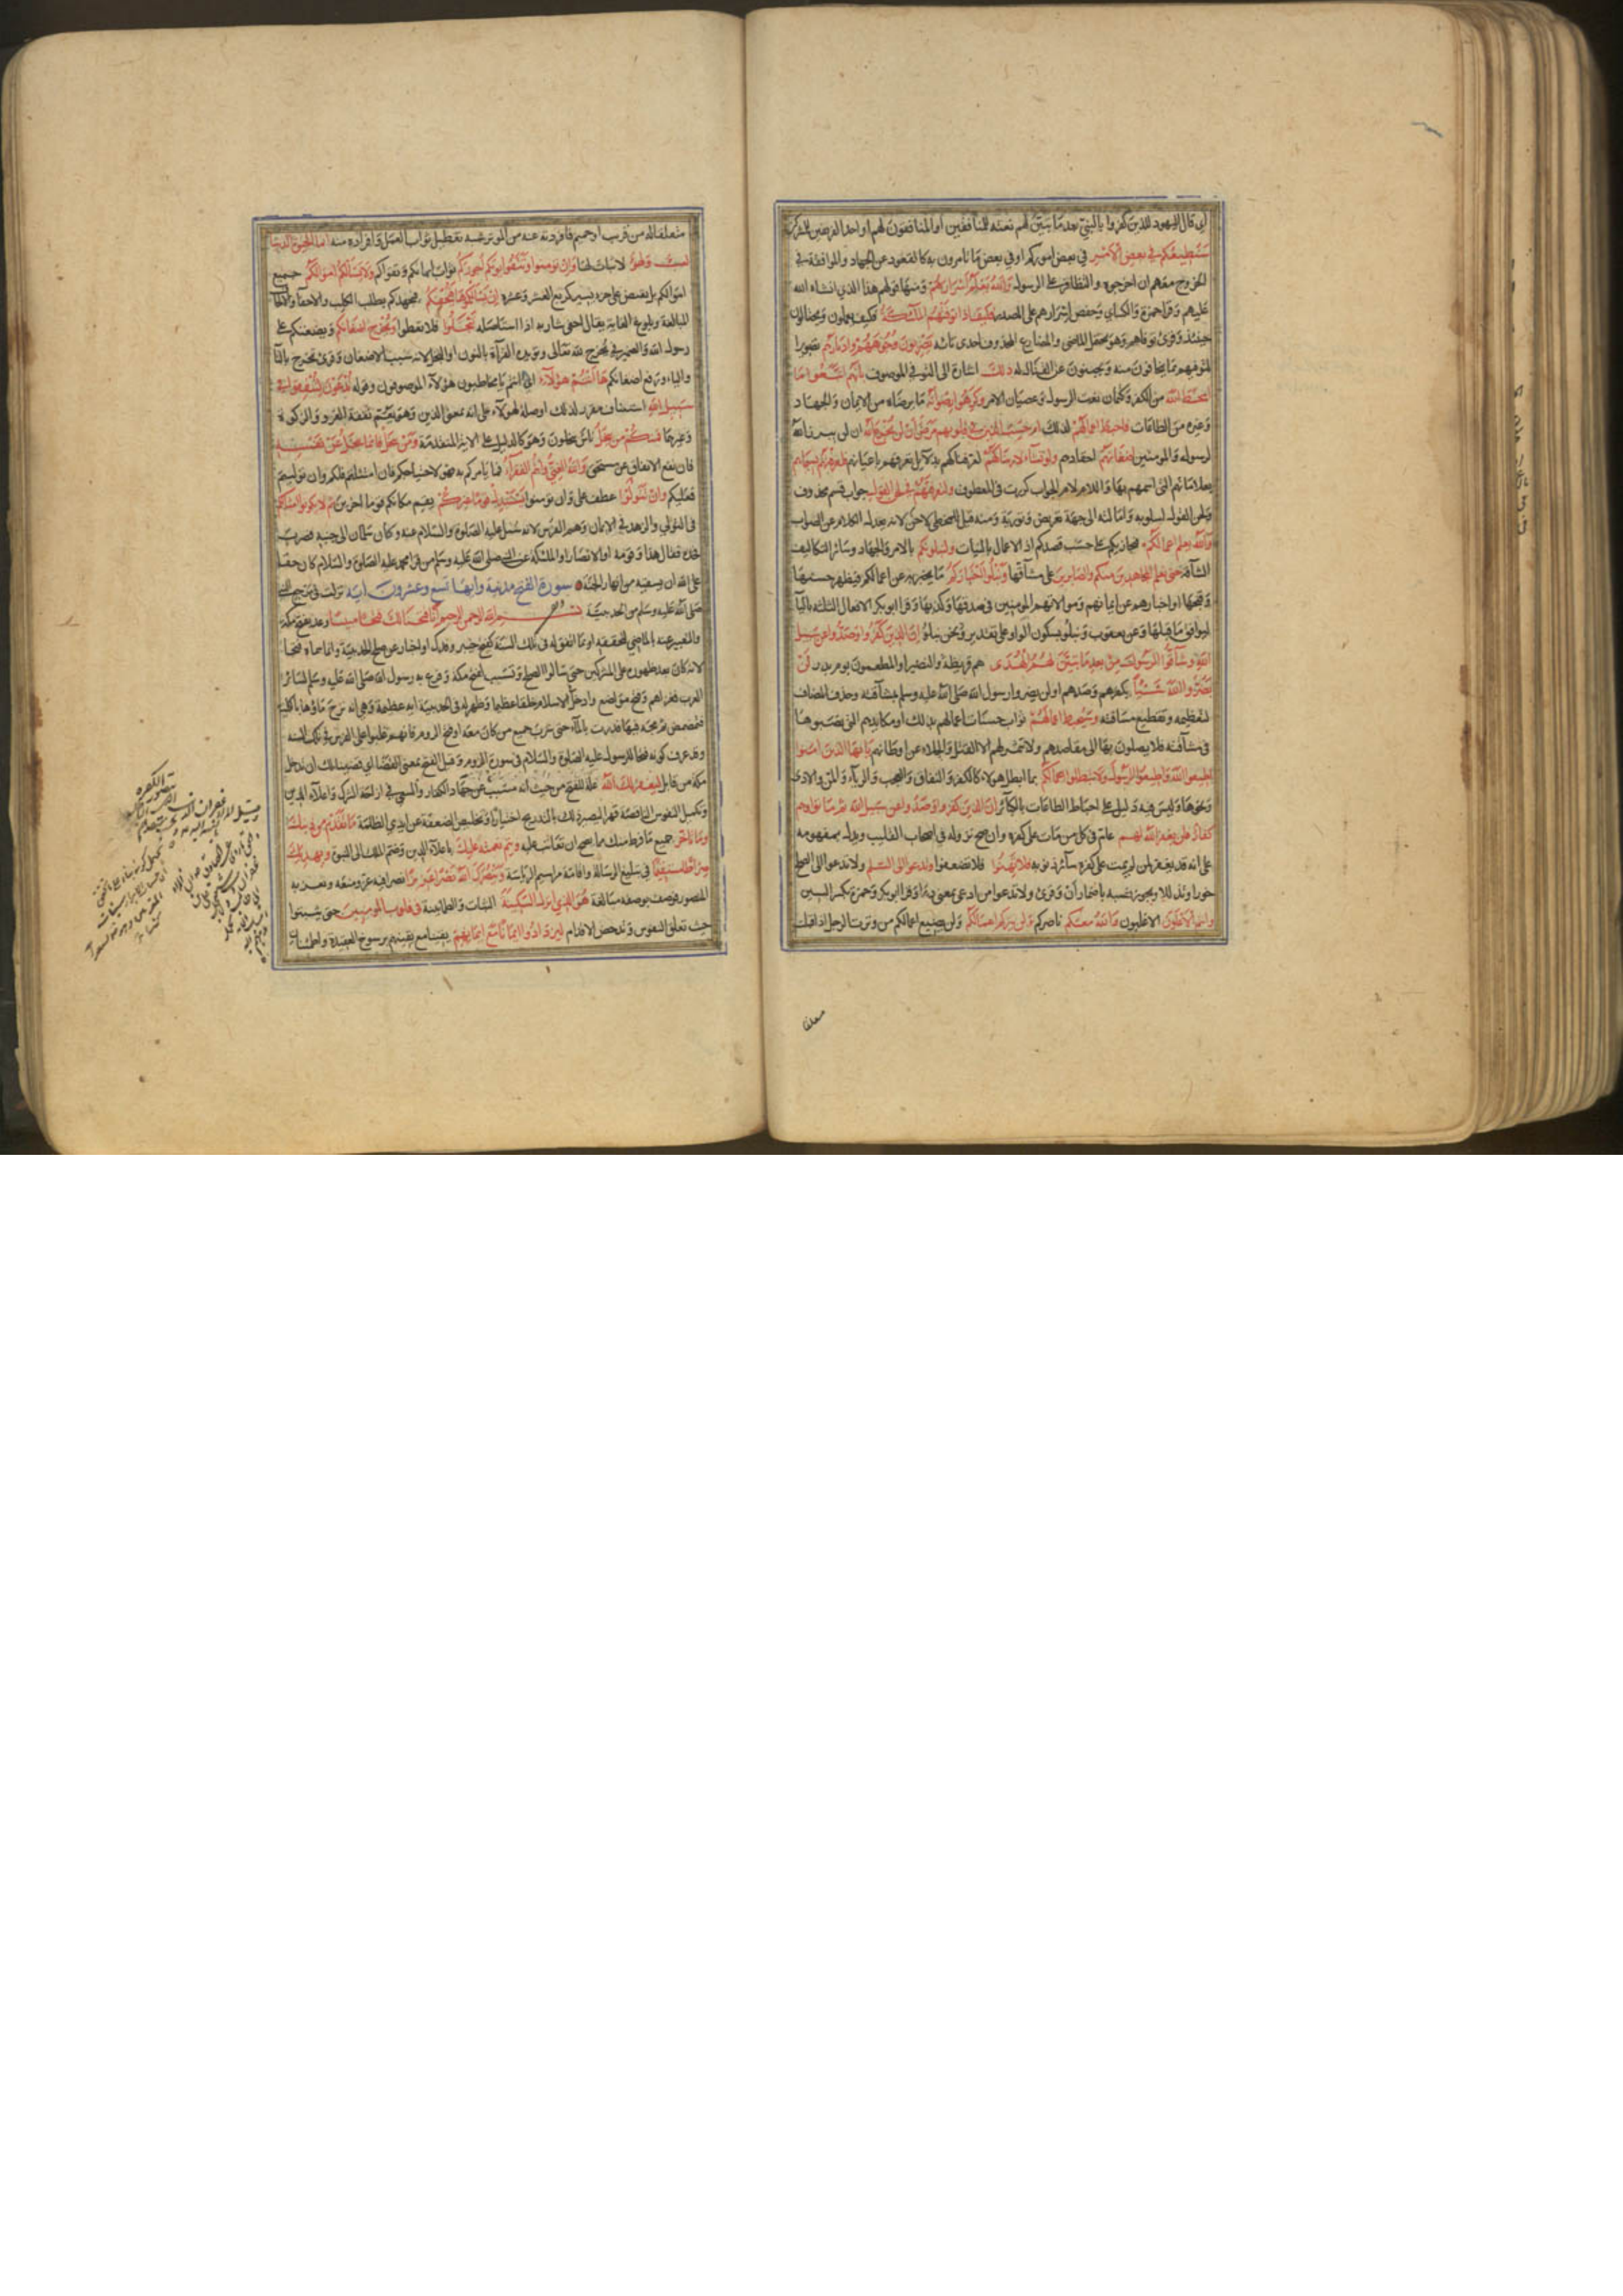 أي قال اليهود للذين كفروا بالنبي بعد ما تبين لهم نعته للمنافقين أو المنافقون لهم أو أحد الفريقين للمشركين
سنطيعكم في بعض الأمر في بعض أموركم أو في بعض ما تأمرون به كالقعود عن الجهاد والموافقة في
الخروج معهم ان اخرجوا والتظافر على الرسول والله يعلم أسرارهم ومنها قولهم هذا الذي افشاه الله
عليهم وقرأ حمزة والكسائي وحفص إسرارهم على المصدر فكيف اذا توفتهم الملائكة فكيف يعملون ويحتالون
حينئذ وقرئ توفاهم وهو يحتمل الماضي والمضارع المحذوف احدى تائيه يضربون وجوههم وادبارهم تصوير
لتوفيهم بما يخافون منه ويجبنون عن القتال له ذلك اشارة الى التوفي الموصوف بأنهم اتبعوا ما
اسخط الله من الكفر وكتمان نعت الرسول وعصيان الامر وكرهوا رضوانه ما يرضاه من الايمان والجهاد
وغيره من الطاعات فاحبط اعمالهم لذلك ام حسب الذين في قلوبهم مرض أن لن يخرج الله ان لن يبرز الله
لرسوله والمؤمنين اضغانهم احقادهم ولو نشاء لاريناكهم لعرفناكهم بدلايل تعرفهم باعيانهم فلعرفتهم بسيماهم
بعلاماتهم التي نسمهم بها واللام لام الجواب كررت في المعطوف ولتعرفنهم في لحن القول جواب قسم محذوف
ولحن القول اسلوبه وامالته الى جهة تعريض وتورية ومنه قيل للمخطئ لاحن لانه يعدل الكلام عن الصواب
والله يعلم اعمالكم فيجازيكم على حسب قصدكم اذ الاعمال بالنيات ولنبلونكم بالامر والجهاد وسائر التكاليف
الشاقة حتى نعلم المجاهدين منكم والصابرين على مشاقها ونبلو اخباركم ما يخبر به عن اعمالكم فيظهر حسنها
وقبحها او اخبارهم عن ايمانهم وموالاتهم المؤمنين في صدقها وكذبها وقرأ ابوبكر الافعال الثلثة بالياء
ليوافق ما قبلها وعن يعقوب ونبلو بسكون الواو على تقدير ونحن نبلو إن الذين كفروا وصدوا عن سبيل
الله وشاقوا الرسول من بعد ما تبين لهم الهدى هم قريظة والنضير او المطعمون يوم بدر لن
يضروا الله شيئا بكفرهم وصدهم او لن يضروا رسول الله صلى الله عليه وسلم بمشاقته وحذف المضاف
لتعظيمه وتفظيع مشاقته وسيحبط اعمالهم ثواب حسنات أعمالهم بذلك او مكايدهم التي نصبوها
في مشاقته فلا يصلون بها الى مقاصدهم ولا تثمر لهم الا القتل والجلاء عن اوطانهم يا ايها الذين امنوا
اطيعوا الله واطيعوا الرسول ولا تبطلوا اعمالكم بما ابطل هولاء كالكفر والنفاق والعجب والرياء والمن والاذى
ونحوها وليس فيه دليل على احباط الطاعات بالكبائر ان الذين كفروا وصدوا عن سبيل الله ثم ماتوا وهم
كفار فلن يغفر الله لهم عام في كل من مات على كفره وان صح نزوله في اصحاب القليب ويدل بمفهومه
على انه قد يغفر لمن لم يمت على كفره سائر ذنوبه فلا تهنوا فلا تضعفوا وتدعوا الى السلم ولا تدعوا الى الصلح
خورا وتذللا ويجوز نصبه باضمار أن وقرئ ولا تدعوا من ادعى بمعنى دعا وقرأ ابوبكر وحمزة بكسر السين
وانتم الاعلون الاغلبون والله معكم ناصركم ولن يتركم اعمالكم ولن يضيع اعمالكم من وترت الرجل اذا قتلت
متعلقا
متعلقا له من قريب او حميم فافردته عنه من الوتر شبه به تعطيل ثواب العمل وافراده منه انما الحيوة الدنيا
لعب ولهو لا ثبات لها وان تؤمنوا وتتقوا يؤتكم أجوركم ثواب ايمانكم وتقواكم ولا يسألكم اموالكم جميع
اموالكم بل يقتصر على جزء يسير كربع العشر وعشره إن يسألكموها فيحفكم فيجهدكم بطلب الكل والاحفاء والالحاف
المبالغة وبلوغ الغاية يقال احفى شاربه اذا استأصله تبخلوا فلا تعطوا ويخرج اضغانكم ويضغنكم على
رسول الله والضمير في يخرج لله تعالى ويؤيده القراءة بالنون او البخل لانه سبب الاضغان وقرئ تخرج بالتاء
والياء ورفع اضغانكم ها أنتم هؤلاء اي انتم يا مخاطبون هؤلاء الموصوفون وقوله تدعون لتنفقوا في
سبيل الله استئناف مقرر لذلك او صلة لهؤلاء على انه بمعنى الذين وهو يعم نفقة الغزو والزكوة
وغيرهما فمنكم من يبخل ناس يبخلون وهو كالدليل على الاية المتقدمة ومن يبخل فانما يبخل عن نفسه
فان نفع الانفاق عن مستحق والله الغني وانتم الفقراء فما يأمركم به فهو لاحتياجكم فان امتثلتم فلكم وان توليتم
فعليكم وان تتولوا عطف على وان تؤمنوا يستبدل قوما غيركم يقم مكانكم قوما اخرين ثم لا يكونوا امثالكم
في التولي والزهد في الايمان وهم الفرس لانه سئل عليه الصلوة والسلام عنه وكان سلمان الى جنبه فضرب
فخذه فقال هذا وقومه او الانصار او الملئكة عن النبي صلى الله عليه وسلم من قرأ محمد عليه الصلوة والسلام كان حقا
على الله ان يسقيه من انهار الجنة سورة الفتح مدنية وآيها تسع وعشرون آية نزلت في مرجع النبي
صلى الله عليه وسلم من الحديبية بسم الله الرحمن الرحيم انا فتحنا لك فتحا مبينا وعد بفتح مكة
والتعبير عنه بالماضي لتحققه او بما اتفق له في تلك السنة كفتح خيبر وفدك او اخبار عن صلح الحديبية وانما سماه فتحا
لانه كان بعد ظهوره على المشركين حتى سألوا الصلح وتسبب لفتح مكة وفرغ به رسول الله صلى الله عليه وسلم لسائر
العرب فغزاهم وفتح مواضع وادخل في الاسلام خلقا عظيما وظهر له في الحديبية اية عظيمة وهي انه نزح ماؤها بالكلية
فتمضمض ثم مجه فيها فدرت بالماء حتى شرب جميع من كان معه او فتح الروم فانهم غلبوا على الفرس في تلك السنة
وقد عرفت كونه فتحا للرسول عليه الصلوة والسلام في سورة الروم وقيل الفتح بمعنى القضاء اي قضينا لك ان تدخل
مكة من قابل ليغفر لك الله علة للفتح من حيث انه مسبب عن جهاد الكفار والسعي في ازاحة الشرك واعلاء الدين
وتكميل النفوس الناقصة قهرا ليصير ذلك بالتدريج اختيارا وتخليص الضعفة عن ايدي الظلمة ما تقدم من ذنبك
وما تاخر جميع ما فرط منك مما يصح ان تعاتب عليه ويتم نعمته عليك باعلاء الدين وضم الملك الى النبوة ويهديك
صراطا مستقيما في تبليغ الرسالة واقامة مراسيم الرياسة وينصرك الله نصرا عزيزا نصرا فيه عز ومنعة او يعز به
المنصور فوصف بوصفه مبالغة هو الذي انزل السكينة الثبات والطمانينة في قلوب المؤمنين حتى يثبتوا
حيث تقلق النفوس وتدحض الاقدام ليزدادوا ايمانا مع ايمانهم يقينا مع يقينهم برسوخ العقيدة واطمئنان